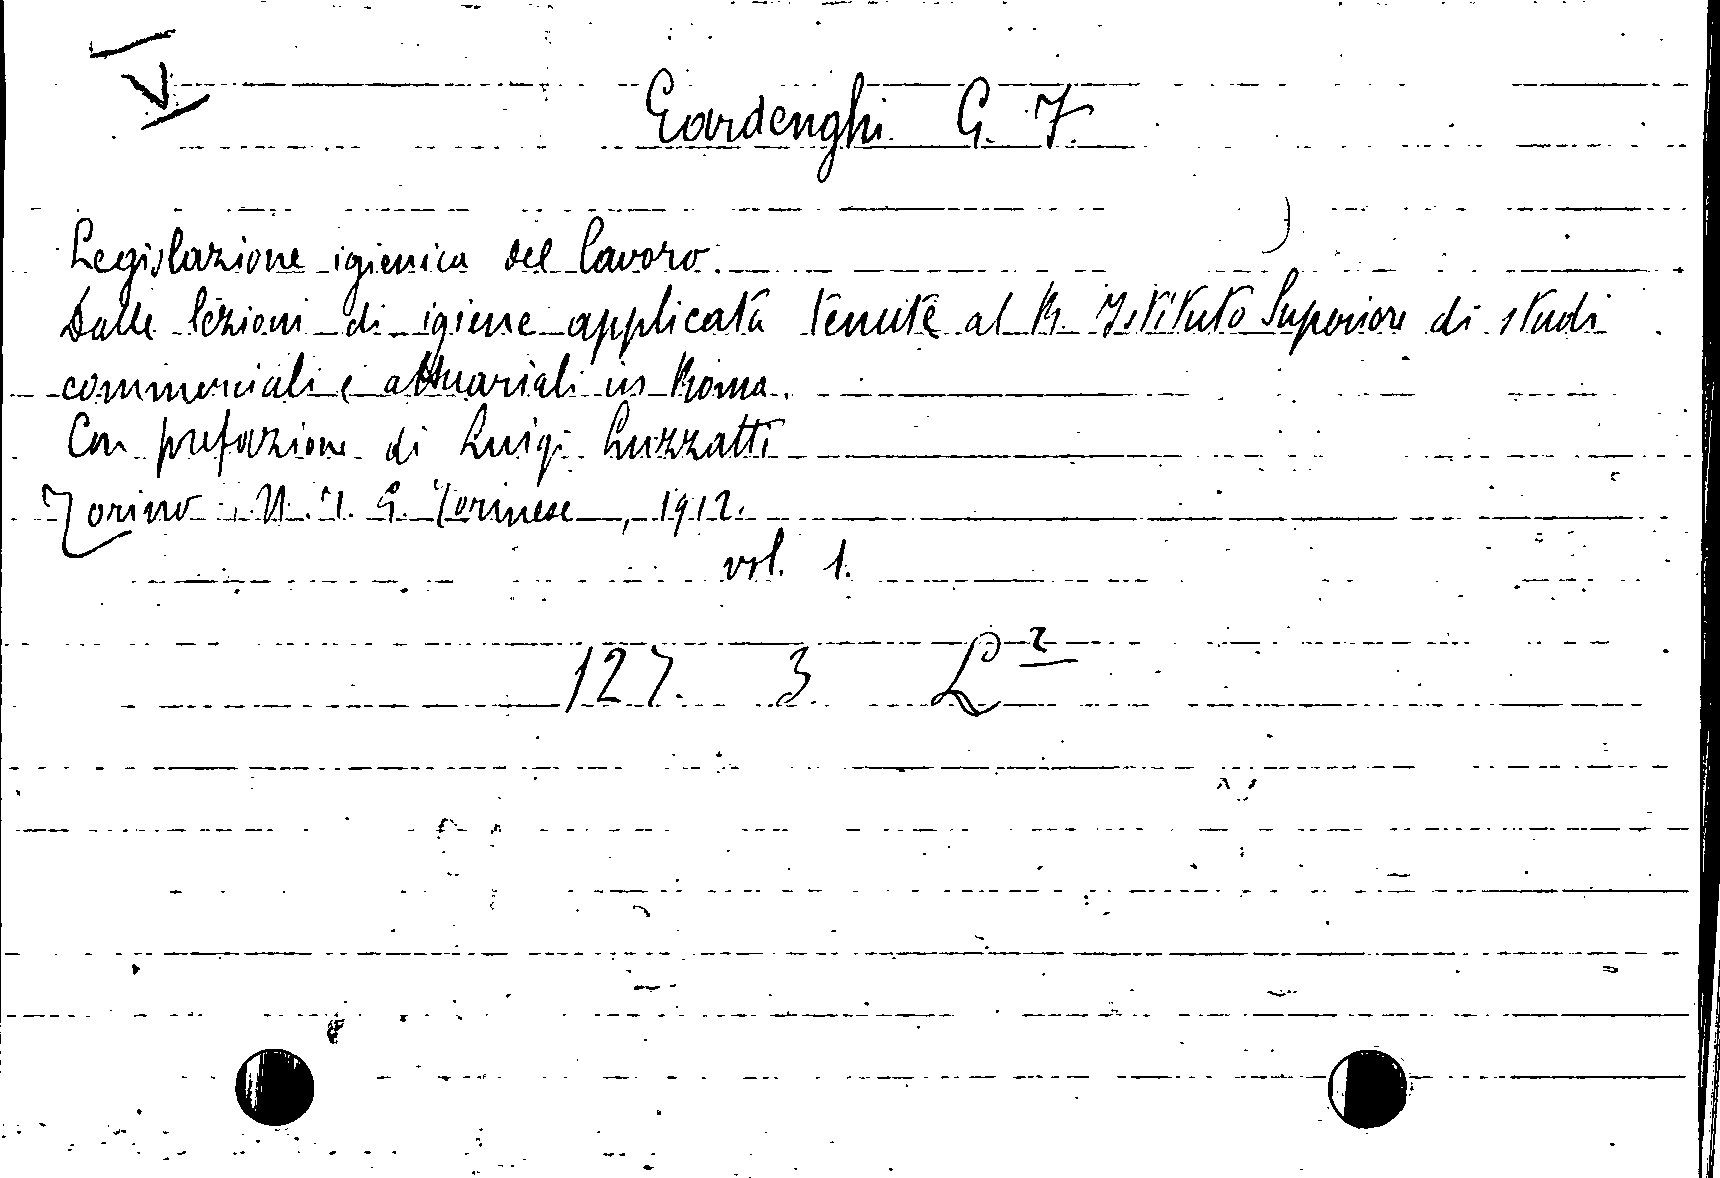 V
Gardenghi G. F.
Legislazione igienica del lavoro.
Dalle lezioni di igiene applicata tenute al R. Istituto Superiore di studi
commerciali e attuariali in Roma.
Con prefazione di Luigi Luzzatti
Torino, U. T. E. Torinese, 1912.
vol. 1.
127. 3